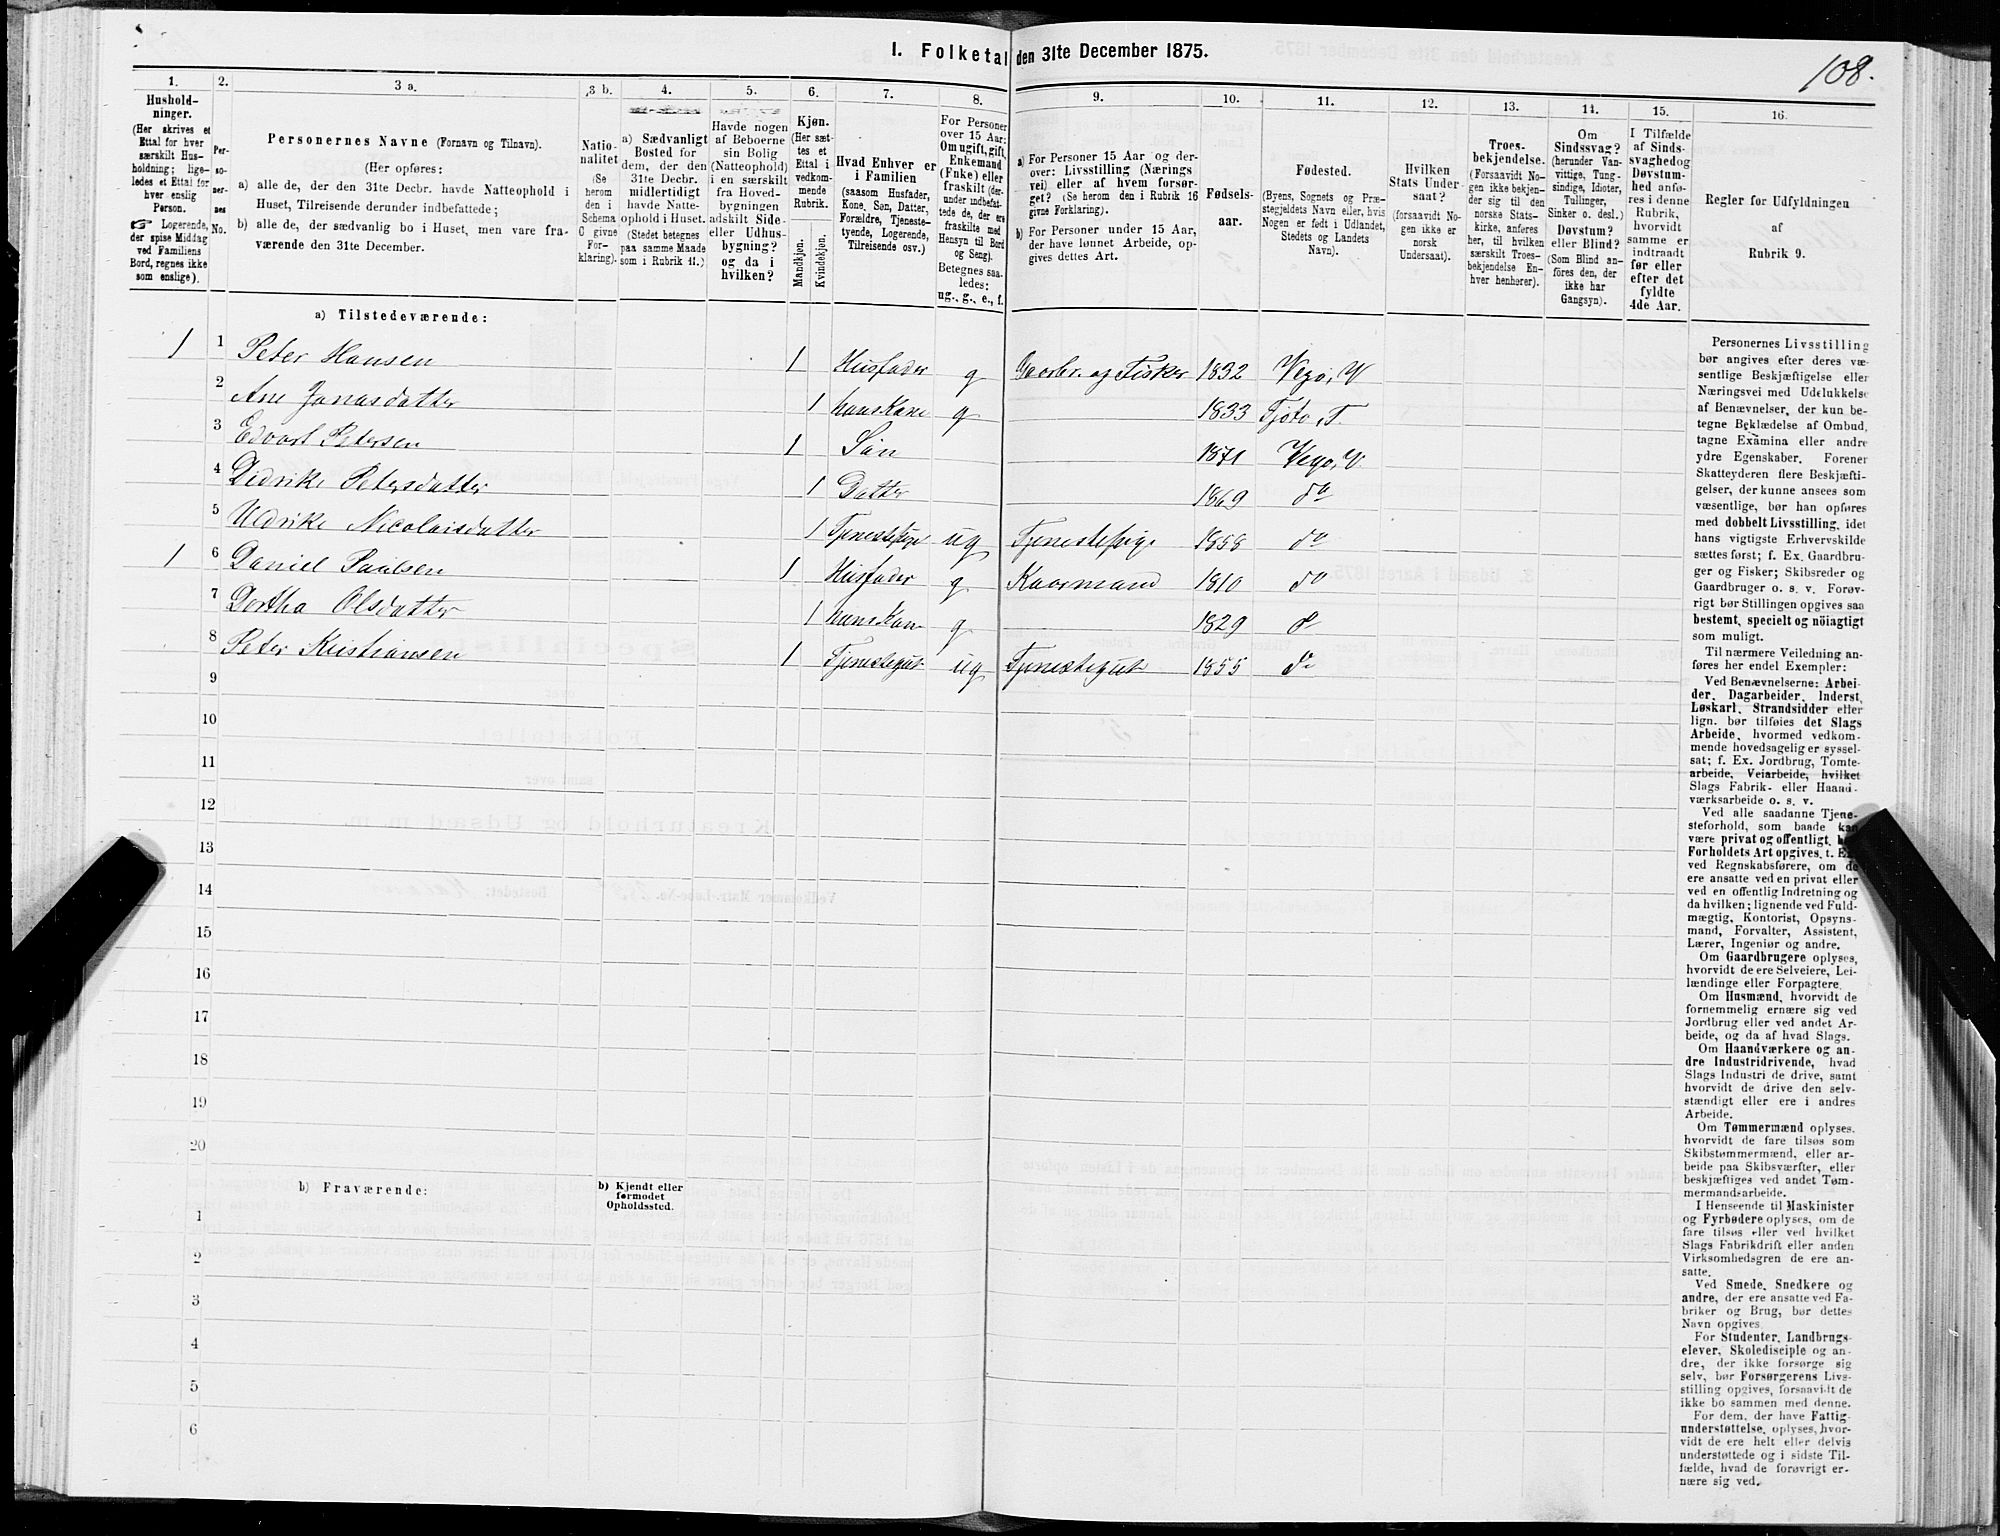 I. Folketal den 31te December 1875.
108.
1.
Hushold-
ninger.
(Her skrives et
Ettal for hver
særskilt Hus-
holdning; lige-
ledes et Ettal for
hver enslig
Person.
☞ Logerende,
der spise Middag
ved Familiens
Bord, regnes ikke
som enslige).
2.
Per-
so-
ner-
nes
No.
3 a.
Personernes Navne (Fornavn og Tilnavn).
(Her opføres:
a) alle de, der den 31te Decbr. havde Natteophold i
Huset, Tilreisende derunder indbefattede;
b) alle de, der sædvanlig bo i Huset, men vare fra-
værende den 31te December.
3 b.
Natio-
nalitet
(Se
herom
den i
Schema
C givne
For-
klaring).
4.
a) Sædvanligt
Bosted for
dem, der den
31te Decbr.
midlertidigt
havde Natte-
ophold i Huset.
(Stedet betegnes
paa samme Maade
som i Rubrik 11.)
5.
Havde nogen
af Beboerne
sin Bolig
(Natteophold)
i en særskilt
fra Hoved-
bygningen
adskilt Side-
eller Udhus-
bygning?
og da i
hvilken?
6.
Kjøn.
(Her sæt-
tes et
Ettal i
vedkom-
mende
Rubrik.
Mandkjøn.
Kvindekjøn.
7.
Hvad Enhver er
i Familien
(saasom Husfader,
Kone, Søn, Datter,
Forældre, Tjeneste-
tyende, Logerende,
Tilreisende osv.)
8.
For Personer
over 15 Aar:
Om ugift, gift,
Enkemand
(Enke) eller
fraskilt (der-
under indbefat-
tede de, der ere
fraskilte med
Hensyn til Bord
og Seng).
Betegnes saa-
ledes:
ug., g., e., f.
9.
a) For Personer 15 Aar og der-
over: Livsstilling (Nærings
vei) eller af hvem forsør-
get? (Se herom den i Rubrik 16
givne Forklaring).
b) For Personer under 15 Aar,
der have lønnet Arbeide, op-
gives dettes Art.
10.
Fødsels-
aar.
11.
Fødested.
(Byens, Sognets og Præ-
stegjeldets Navn eller, hvis
Nogen er født i Udlandet,
Stedets og Landets
Navn).
12.
Hvilken
Stats Under-
saat?
(forsaavidt No-
gen ikke er
norsk
Undersaat).
13.
Troes-
bekjendelse.
(Forsaavidt No-
gen ikke bekjen-
der sig til den
norske Stats-
kirke, anføres
her, til hvilken
særskilt Troes-
bekjendelse En-
hver henhører).
14.
Om
Sindssvag?
(herunder Van-
vittige, Tung-
sindige, Idioter,
Tullinger,
Sinker o. desl.)
Døvstum?
eller Blind?
(Som Blind an-
føres den, der
ikke har
Gangsyn).
15.
I Tilfælde
af Sinds-
svaghed og
Døvstum-
hed anfø-
res i denne
Rubrik,
hvorvidt
samme er
indtraadt
før eller
efter det
fyldte
4de Aar.
16.
Regler for Udfyldningen
af
Rubrik 9.
a) Tilstedeværende:
1 1 Peter Hansen 1 Husfader g Gaarbr. og Fisker 1832 Vegø, V
2 Ane Jonasdatter 1 hans Kone g 1833 Tjøtø, T.
3 Edvart Petersen 1 Søn 1871 Vegø, V.
4 Didrike Petersdatter 1 Datter 1869 do
5 Uldrike Nicolaisdatter 1 Tjenestepige ug Tjenestepige 1858 do
1 6 Daniel Paulsen 1 Husfader g Kaarmand 1810 do
7 Dortha Olsdatter 1 hans Kone g 1829 do
8 Peter Kristiansen 1 Tjenestegut ug Tjenestegut 1855 do
9
10
11
12
13
14
15
16
17
18
19
20
b) Fraværende:
b) Kjendt eller
formodet
Opholdssted.
1
2
3
4
5
6
Personernes Livsstilling
bør angives efter deres væ-
sentlige Beskjæftigelse eller
Næringsvei med Udelukkelse
af Benævnelser, der kun be-
tegne Beklædelse af Ombud,
tagne Examina eller andre
ydre Egenskaber. Forener
Skatteyderen flere Beskjæfti-
gelser, der kunne ansees som
væsentlige, bør han opføres
med dobbelt Livsstilling, idet
hans vigtigste Erhvervskilde
sættes først; f. Ex. Gaardbru-
ger og Fisker; Skibsreder og
Gaardbruger o. s. v. Forøv-
rigt bør Stillingen opgives saa
bestemt, specielt og nöiagtigt
som muligt.
Til nærmere Veiledning an-
føres her endel Exempler:
Ved Benævnelserne: Arbei-
der, Dagarbeider, Inderst,
Løskarl, Strandsidder eller
lign. bør tilføies det Slags
Arbeide, hvormed vedkom-
mende hovedsagelig er syssel-
sat; f. Ex. Jordbrug, Tomte-
arbeide, Veiarbeide, hvilket
Slags Fabrik- eller Haand-
værksarbeide o. s. v.
Ved alle saadanne Tjene-
steforhold, som baade kan
være privat og offentligt, bør
Forholdets Art opgives, t. Ex.
ved Regnskabsførere, om de
ere ansatte ved en privat eller
ved en offentlig Indretning og
da hvilken; lignende ved Fuld-
mægtig, Kontorist, Opsyns-
mand, Forvalter, Assistent,
Lærer, Ingeniør og andre.
Om Gaardbrugere oplyses,
hvorvidt de ere Selveiere, Lei-
lændinge eller Forpagtere.
Om Husmænd, hvorvidt de
fornemmelig ernære sig ved
Jordbrug eller ved andet Ar-
beide, og da af hvad Slags.
Om Haandværkere og an-
dre Industridrivende, hvad
Slags Industri de drive, samt
hvorvidt de drive den selv-
stændigt eller ere i andres
Arbeide.
Om Tømmermænd oplyses,
hvorvidt de fare tilsøs som
Skibstømmermænd, eller ar-
beide paa Skibsværfter, eller
beskjæftiges ved andet Tøm-
mermandsarbeide.
I Henseende til Maskinister
og Fyrbødere oplyses, om de
fare tilsøs eller ved hvilket
Slags Fabrikdrift eller anden
Virksomhedsgren de ere an-
satte.
Ved Smede, Snedkere og
andre, der ere ansatte ved Fa-
briker og Brug, bør dettes
Navn opgives.
For Studenter, Landbrugs-
elever, Skoledisciple og an-
dre, der ikke forsørge sig
selv, bør Forsørgerens Livs-
stilling opgives, forsaavidt de
ikke bo sammen med denne.
For dem, der have Fattig-
understøttelse, oplyses, hvor-
vidt de ere helt eller delvis
understøttede og i sidste Til-
fælde, hvad de forøvrigt er-
nære sig ved.